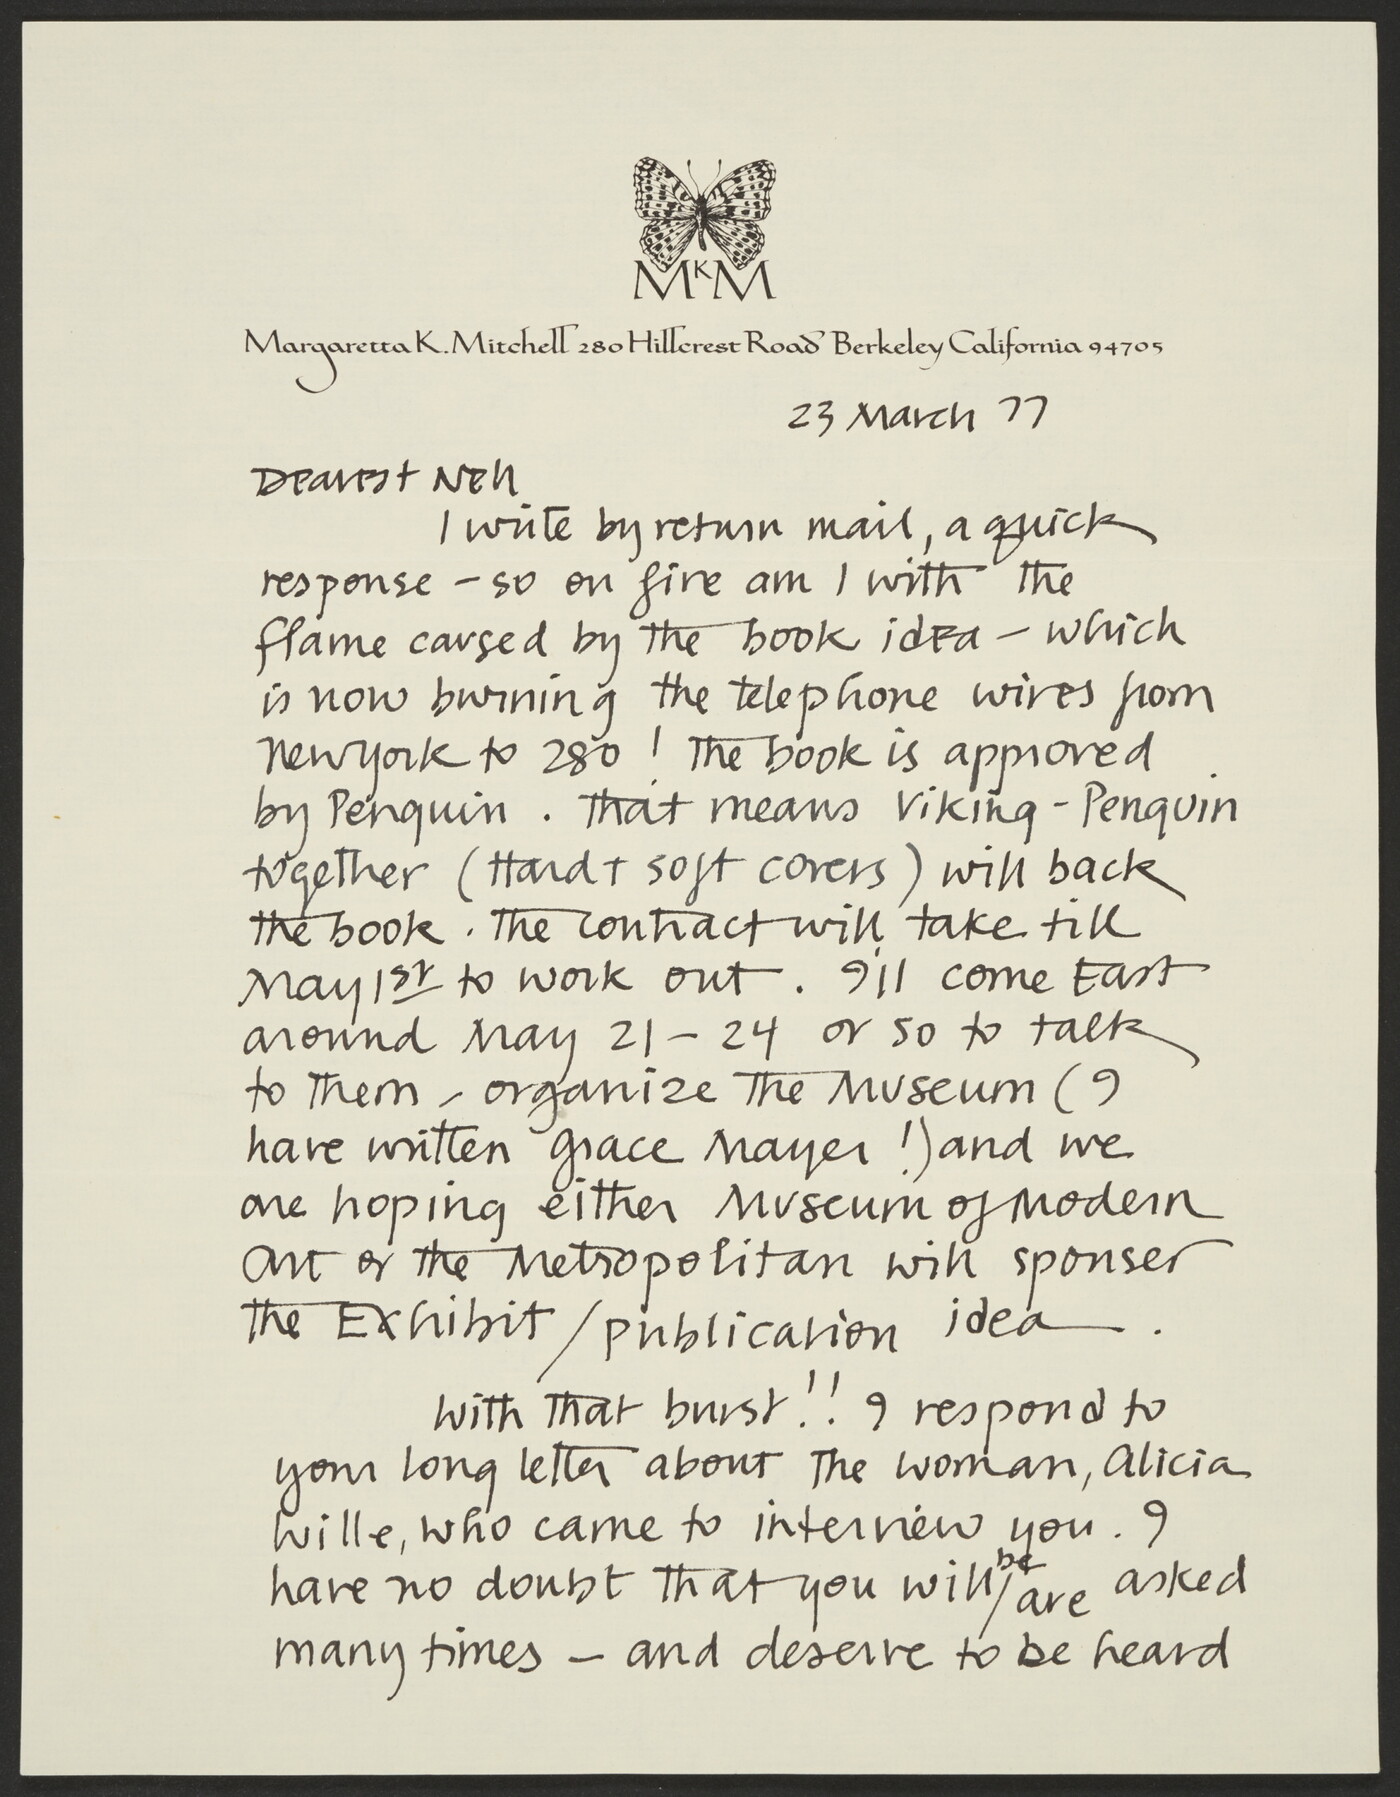 MKM
Margaretta K. Mitchell 280 Hillcrest Road Berkeley California 94705
23 March 77
Dearest Nell
I write by return mail, a quick
response - so on fire am I with the
flame caused by the book idea - which
is now burning the telephone wires from
New York to 280! The book is approved
by Penguin. That means Viking-Penguin
together (Hard + soft covers) will back
the book. The contract will take till
May 1st to work out. I'll come East
around May 21-24 or so to talk
to them - organize the Museum (I
have written Grace Mayer!) and we
are hoping either Museum of Modern
Art or the Metropolitan will sponser
the Exhibit/publication idea.
With that burst!! I respond to
your long letter about the woman, Alicia
Wille, who came to interview you. I
have no doubt that you will be/are asked
many times - and deserve to be heard